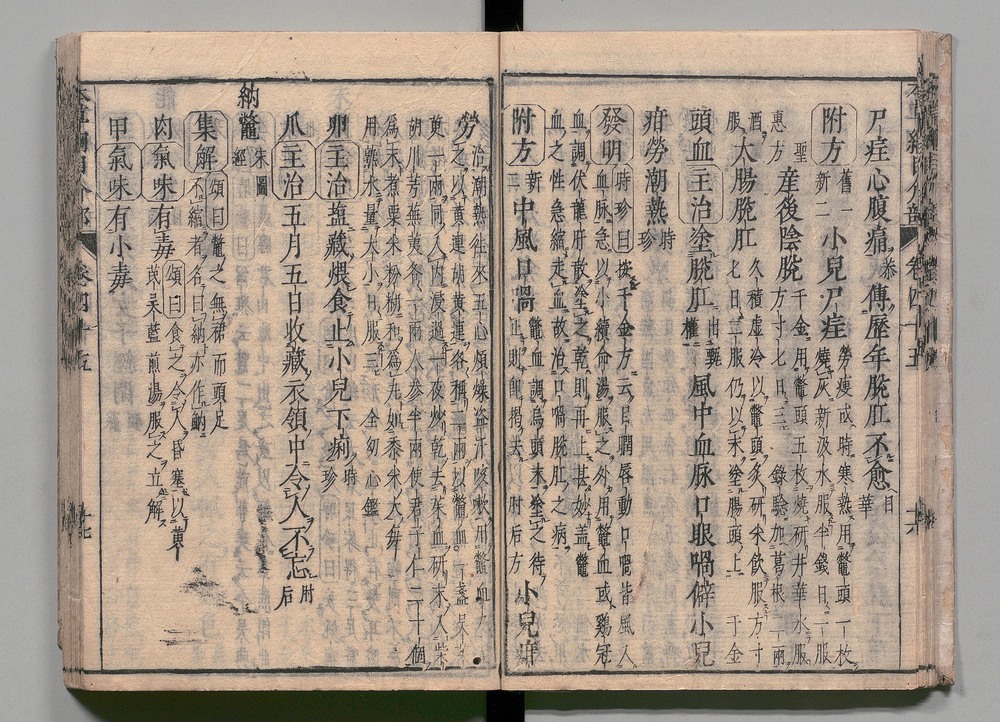 尸疰心腹痛恭傳屍年脫肛不愈日華
附方舊一新二小兒尸疰勞瘦或時寒熱用鼈頭一枚
燒灰新汲水服半錢日一服
聖惠方產後陰脫千金用鼈頭五枚燒研井華水服
方寸匕日三錄驗加葛根二兩
酒服大腸脫肛久積虛冷以鼈頭炙研米飲服方寸
匕日二服仍以末塗腸頭上千金
頭血主治塗脫肛出甄權風中血脉口眼喎僻小兒
疳勞潮熱時珍
發明時珍曰按千金方云目瞤唇動口喎皆風入
血脉急以小續命湯服之外用鼈血或雞冠
血調伏龍肝散塗之乾則再上甚妙盖鼈
血之性急縮走血故治口喎脫肛之病
附方新二中風口喎鼈血調烏頭末塗之待
正則即揭去肘后方小兒疳
勞治潮熱往來五心煩燥盗汗咳嗽用鼈血
之以黄連胡黄連各稱二兩以鼈血一盞
一兩同入內浸過一夜炒乾去血研末入柴
胡川芎蕪荑各一兩人參半兩使君子仁二十個
為末煮粟米粉糊和為丸如黍米大每
用熱水量大小日服三全幼心鑑
卵主治鹽藏煨食止小兒下痢時珍
爪主治五月五日收藏衣領中令人不忘肘后
納鼈宋圖經
集解頌曰鼈之無裙而頭足
不縮者名曰納亦作䱹
肉氣味有毒頌曰食之令人昏塞以黄
芪吴藍煎湯服之立解
甲氣味有小毒